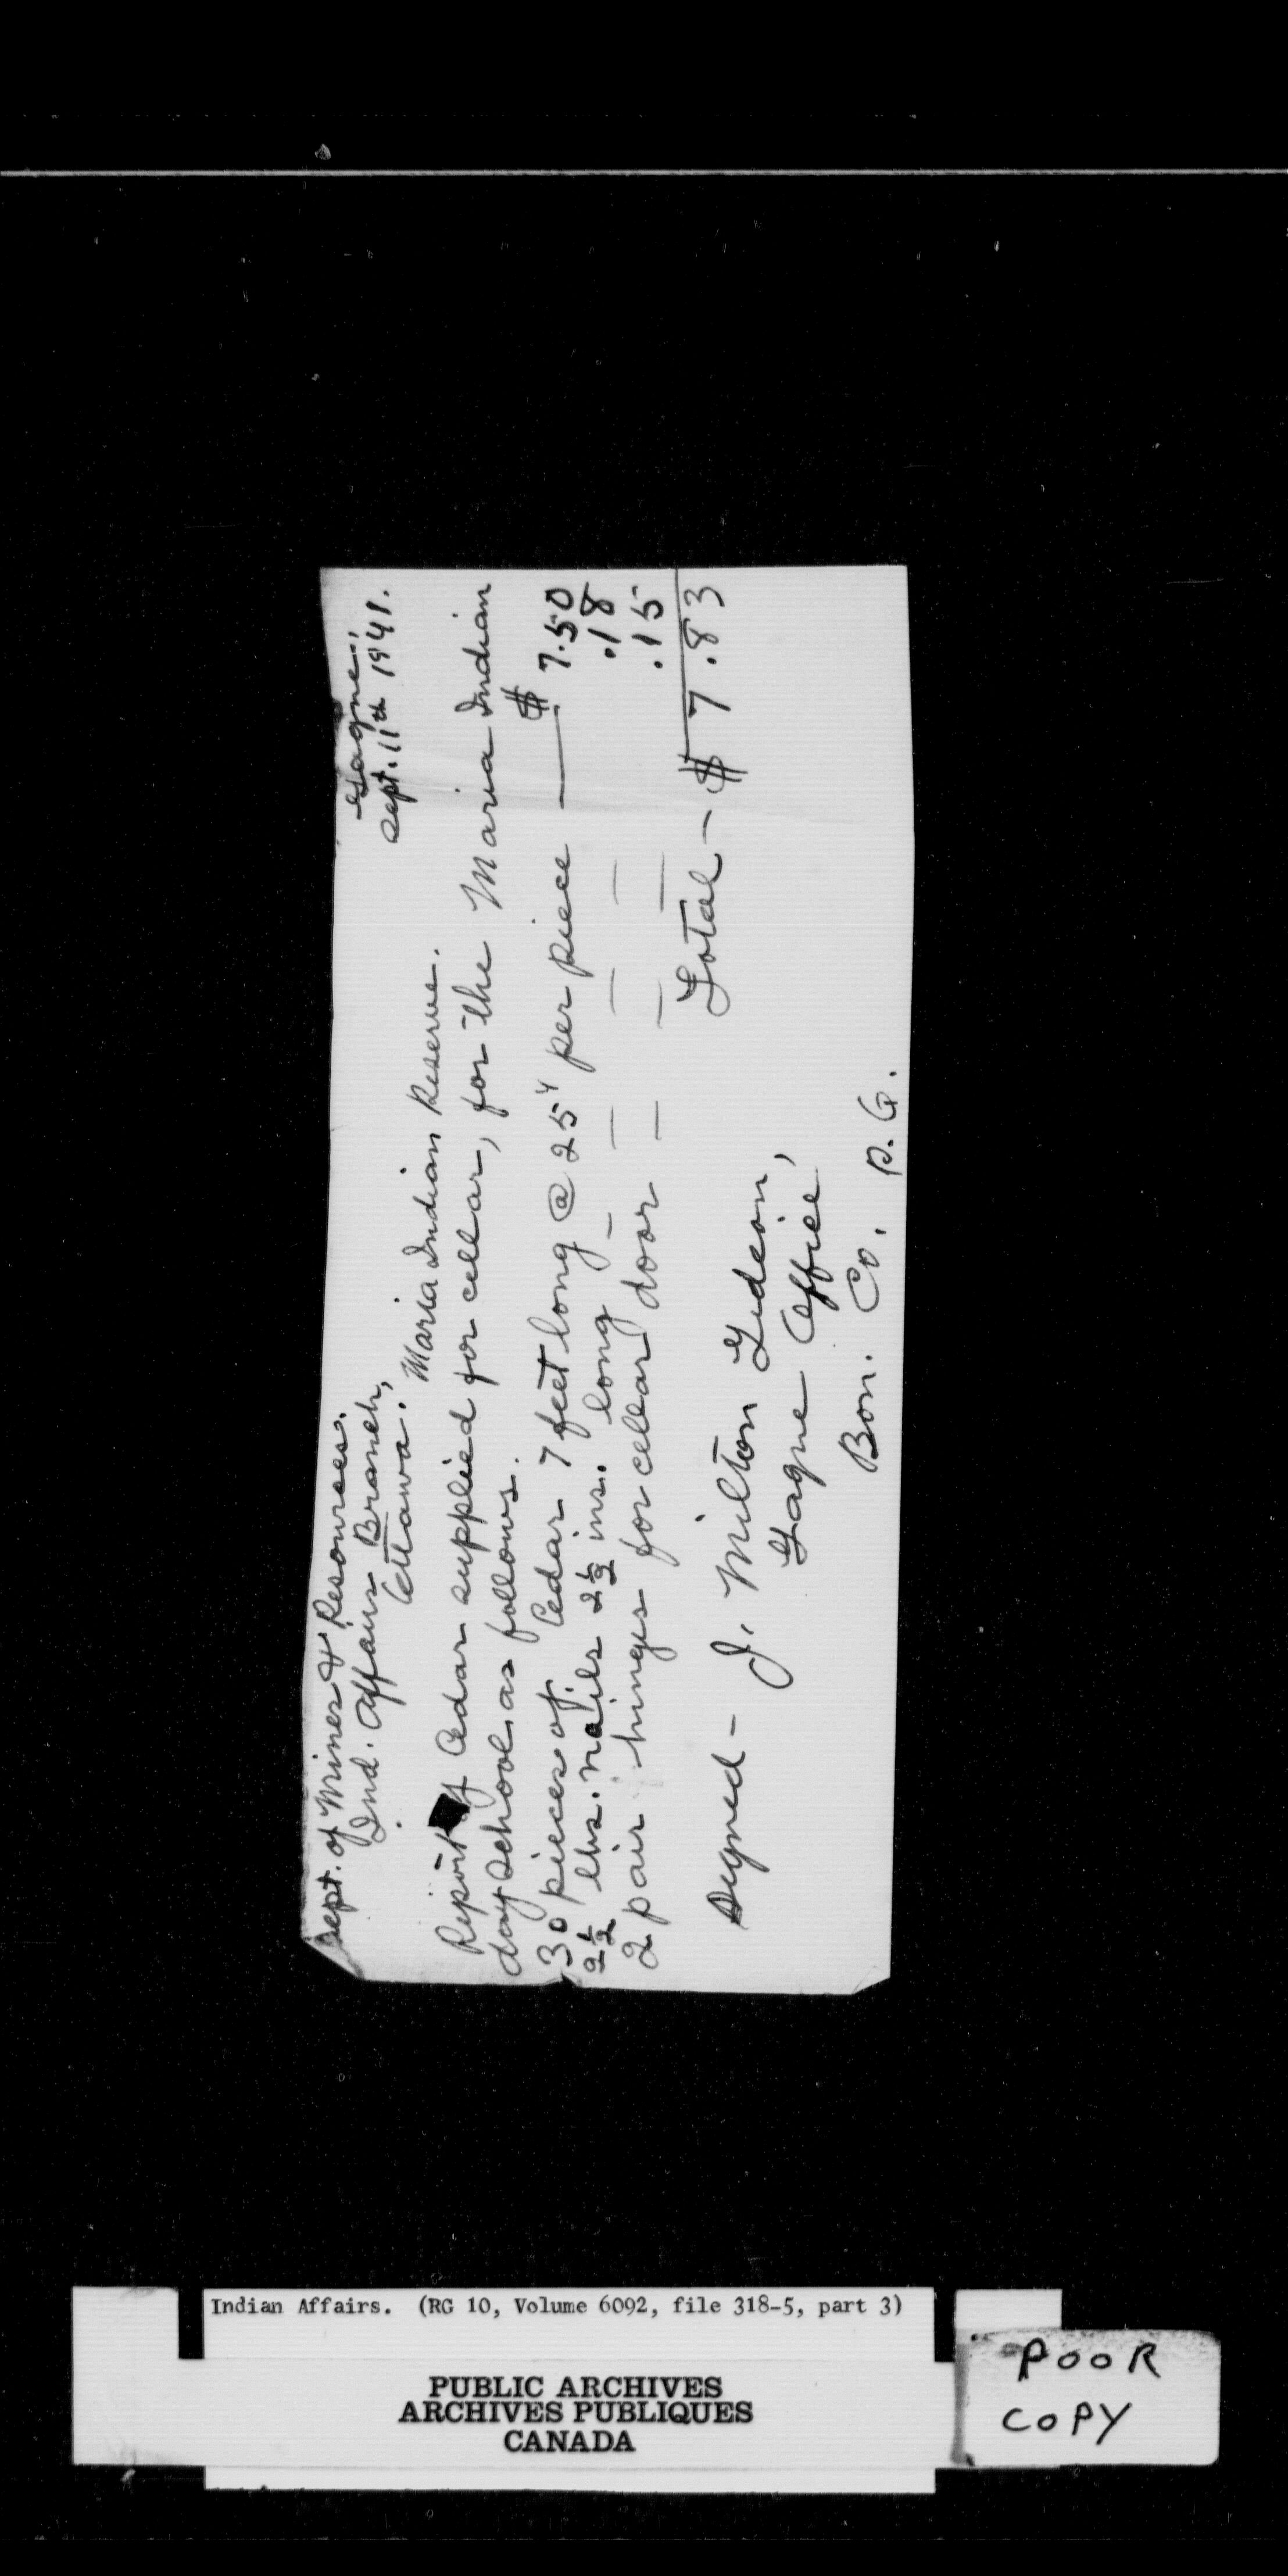 Gagne,
Sept. 11th 1941.
Dept. of Mines & Resources.
Ind. Affairs Branch,
Ottawa.
Maria Indian Reserve.
Report of Cedar supplied for cellar, for the Maria Indian
day school, as follows.
30 pieces of Cedar 7 feet long @ 25¢ per piece — $ 7.50
2½ lbs. nails 2½ ins. long — — — — .18
2 pair hinges for cellar door — — — .15
Total - $ 7.83
Signed - J. Milton Gideon,
Gagne Office,
Bon. Co. P.Q.
Indian Affairs. (RG 10, Volume 6092, file 318-5, part 3)
PUBLIC ARCHIVES
ARCHIVES PUBLIQUES
CANADA
POOR
COPY